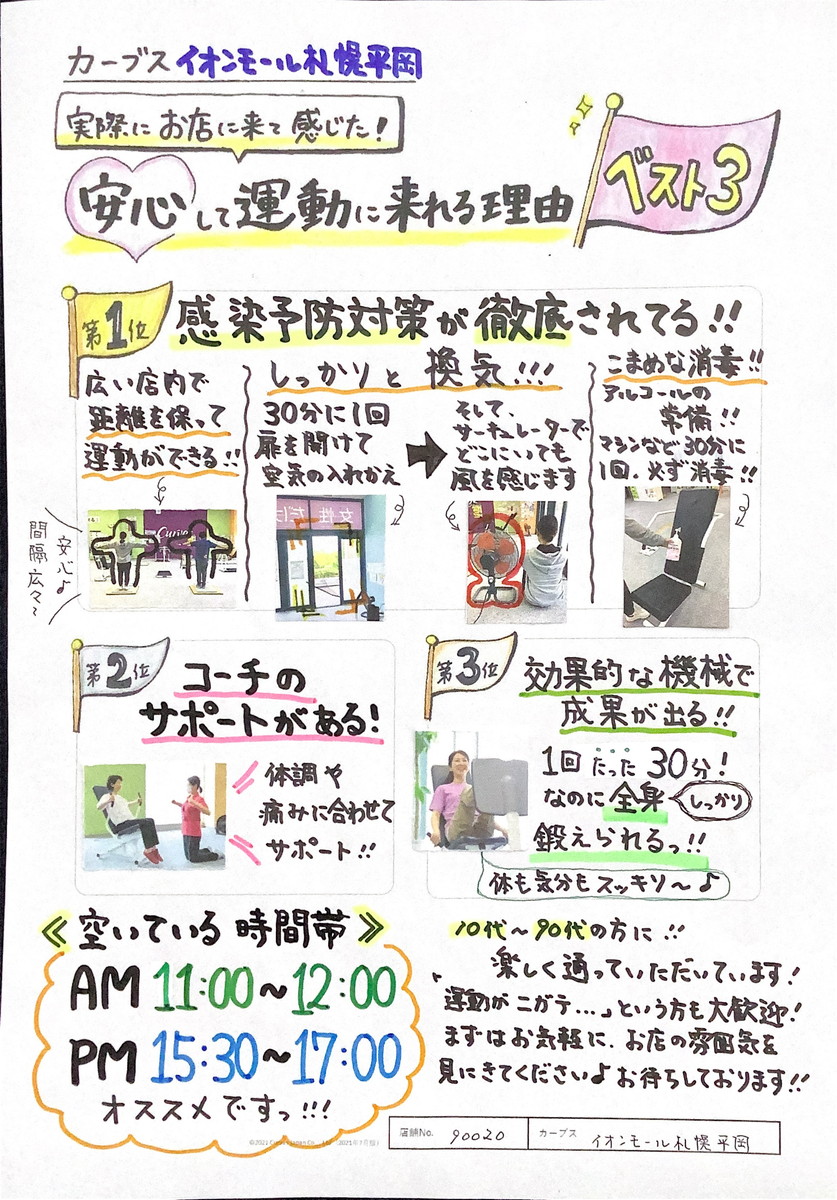 カーブス イオンモール札幌平岡
実際に お店に来て 感じた!
安心して運動に来れる理由
ベスト3
第1位
感染予防対策が徹底されてる!!
広い店内で
距離を保って
運動ができる!!
間隔広々〜
安心♪
しっかりと 換気!!!
30分に1回
扉を開けて
空気の入れかえ
そして、
サーキュレーターで
どこにいても
風を感じます
こまめな消毒!!
アルコールの
常備!!
マシンなど30分に
1回、必ず消毒!!
第2位
コーチの
サポートがある!
体調や
痛みに合わせて
サポート!!
第3位
効果的な機械で
成果が出る!!
1回 たった 30分!
なのに 全身 しっかり
鍛えられるっ!!
体も気分もスッキリ〜♪
≪空いている 時間帯≫
AM 11:00~12:00
PM 15:30~17:00
オススメですっ!!!
10代〜90代の方に!!
楽しく通っていただいています!
「運動がニガテ...」という方も大歓迎!
まずはお気軽に、お店の雰囲気を
見にきてください♪お待ちしております!!
店舗No. 90020 カーブス イオンモール札幌平岡